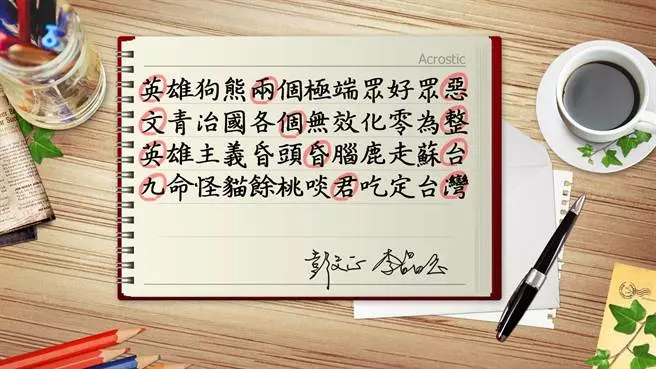 Acrostic
英雄狗熊兩個極端眾好眾惡
文青治國各個無效化零為整
英雄主義昏頭昏腦鹿走蘇台
九命怪貓餘桃啖君吃定台灣
彭文正 李晶玉